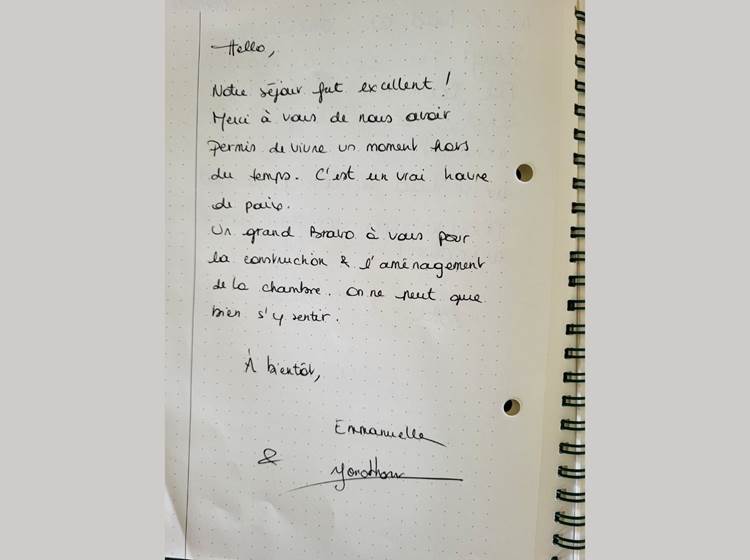 Hello,
Notre séjour fut excellent !
Merci à vous de nous avoir
permis de vivre un moment hors
du temps. C'est un vrai havre
de paix.
Un grand Bravo à vous pour
la construction & l'aménagement
de la chambre. On ne peut que
bien s'y sentir.
À bientôt,
Emmanuelle
& Yonathan